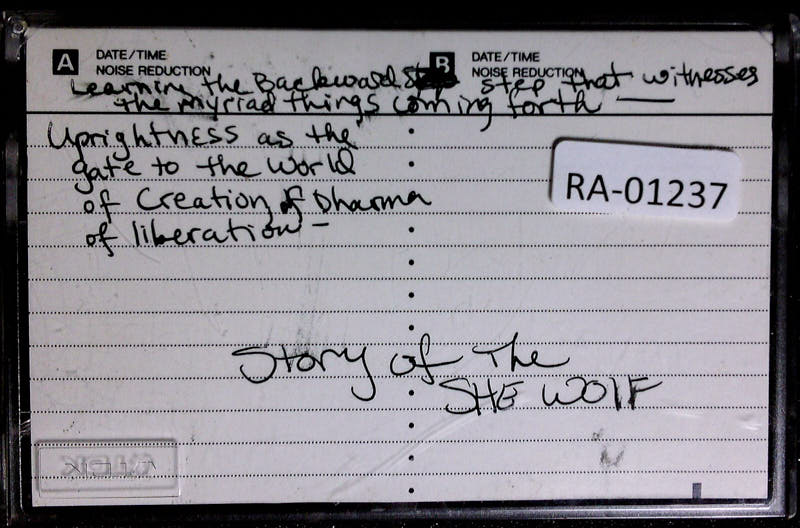 A DATE/TIME
NOISE REDUCTION
B DATE/TIME
NOISE REDUCTION
Learning the Backward step that witnesses
the myriad things coming forth —
Uprightness as the
gate to the World
of Creation of Dharma
of liberation –
RA-01237
Story of The
SHE WOlF
TDK